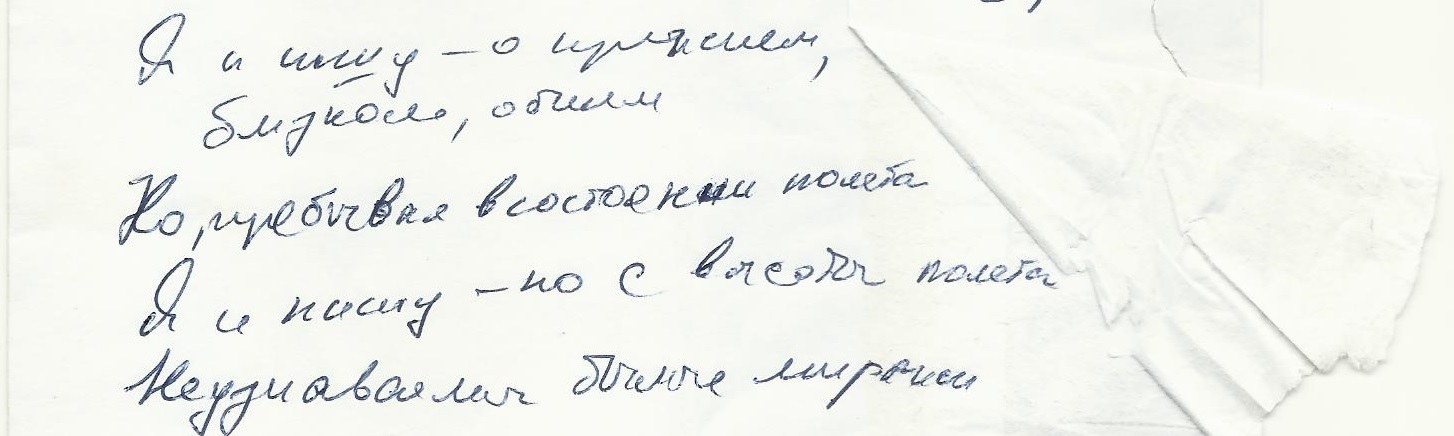 Я и пишу – о прежнем,
близком, общем
Но, пребывая в состоянии полета
Я и пишу – но с высоты полета
Неузнаваемы былые миражи